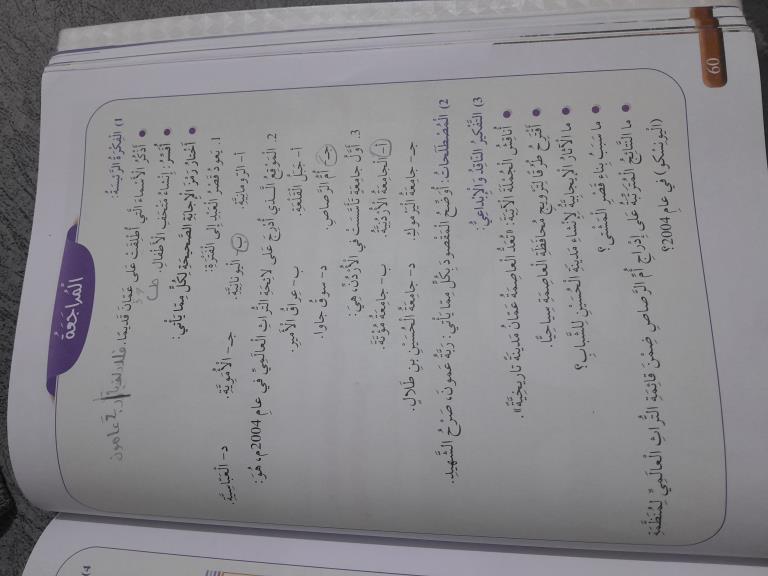 الْمُرَاجَعَةُ
1) الْفِكْرَةُ الرَّئِيسَةُ:
• أَذْكُرُ الْأَسْمَاءَ الَّتِي أُطْلِقَتْ عَلَى عَمّانَ قَدِيمًا.
• أُفَسِّرُ: إِنْشَاءَ مُتْحَفِ الْأَطْفَالِ.
• أَخْتَارُ رَمْزَ الْإِجَابَةِ الصَّحِيحَةِ لِكُلٍّ مِمّا يَأْتِي:
1. يَعُودُ قَصْرُ الْعَبْدِ إِلَى الْفَتْرَةِ:
أ- الرّومانِيَّةِ. ب- الْيونانِيَّةِ. جـ- الْأُمَوِيَّةِ. د- الْعَبّاسِيَّةِ.
2. الْمَوْقِعُ الَّذِي أُدْرِجَ عَلَى لائِحَةِ التُّراثِ الْعالَمِيِّ في عامِ 2004م، هُوَ:
أ- جَبَلُ الْقَلْعَةِ. ب- عِراقُ الْأَميرِ.
جـ- أُمُّ الرَّصاصِ. د- سوقُ جاوا.
3. أَوَّلُ جامِعَةٍ تَأَسَّسَتْ فِي الْأُرْدُنِّ، هِيَ:
أ- الْجامِعَةُ الْأُرْدُنِيَّةُ. ب- جامِعَةُ مُؤْتَةَ.
جـ- جامِعَةُ الْيَرْموكِ. د- جامِعَةُ الْحُسَيْنِ بْنِ طَلالٍ.
2) الْمُصْطَلَحاتُ: أُوَضِّحُ الْمَقْصودَ بِكُلٍّ مِمّا يَأْتي: رَبَّةُ عَمّونَ، صَرْحُ الشَّهيدِ.
3) التَّفْكيرُ النّاقِدُ وَالْإِبْداعِيُّ:
• أُناقِشُ الْجُمْلَةَ الْآتِيَةَ: «تُعَدُّ الْعاصِمَةُ عَمّانُ مَدينَةً تاريخِيَّةً».
• أَقْتَرِحُ طُرُقًا لِتَرْويجِ مُحافَظَةِ الْعاصِمَةِ سِياحِيًّا.
• ما الْآثارُ الْإيجابِيَّةُ لِإِنْشاءِ مَدينَةِ الْحُسَيْنِ لِلشَّبابِ؟
• ما سَبَبُ بِناءِ قَصْرِ الْمَشْتى؟
• ما النَّتائِجُ الْمُتَرَتِّبَةُ عَلى إِدْراجِ أُمِّ الرَّصاصِ ضِمْنَ قائِمَةِ التُّراثِ الْعالَمِيِّ لِمُنَظَّمَةِ
(الْيونِسْكو) في عامِ 2004؟
60